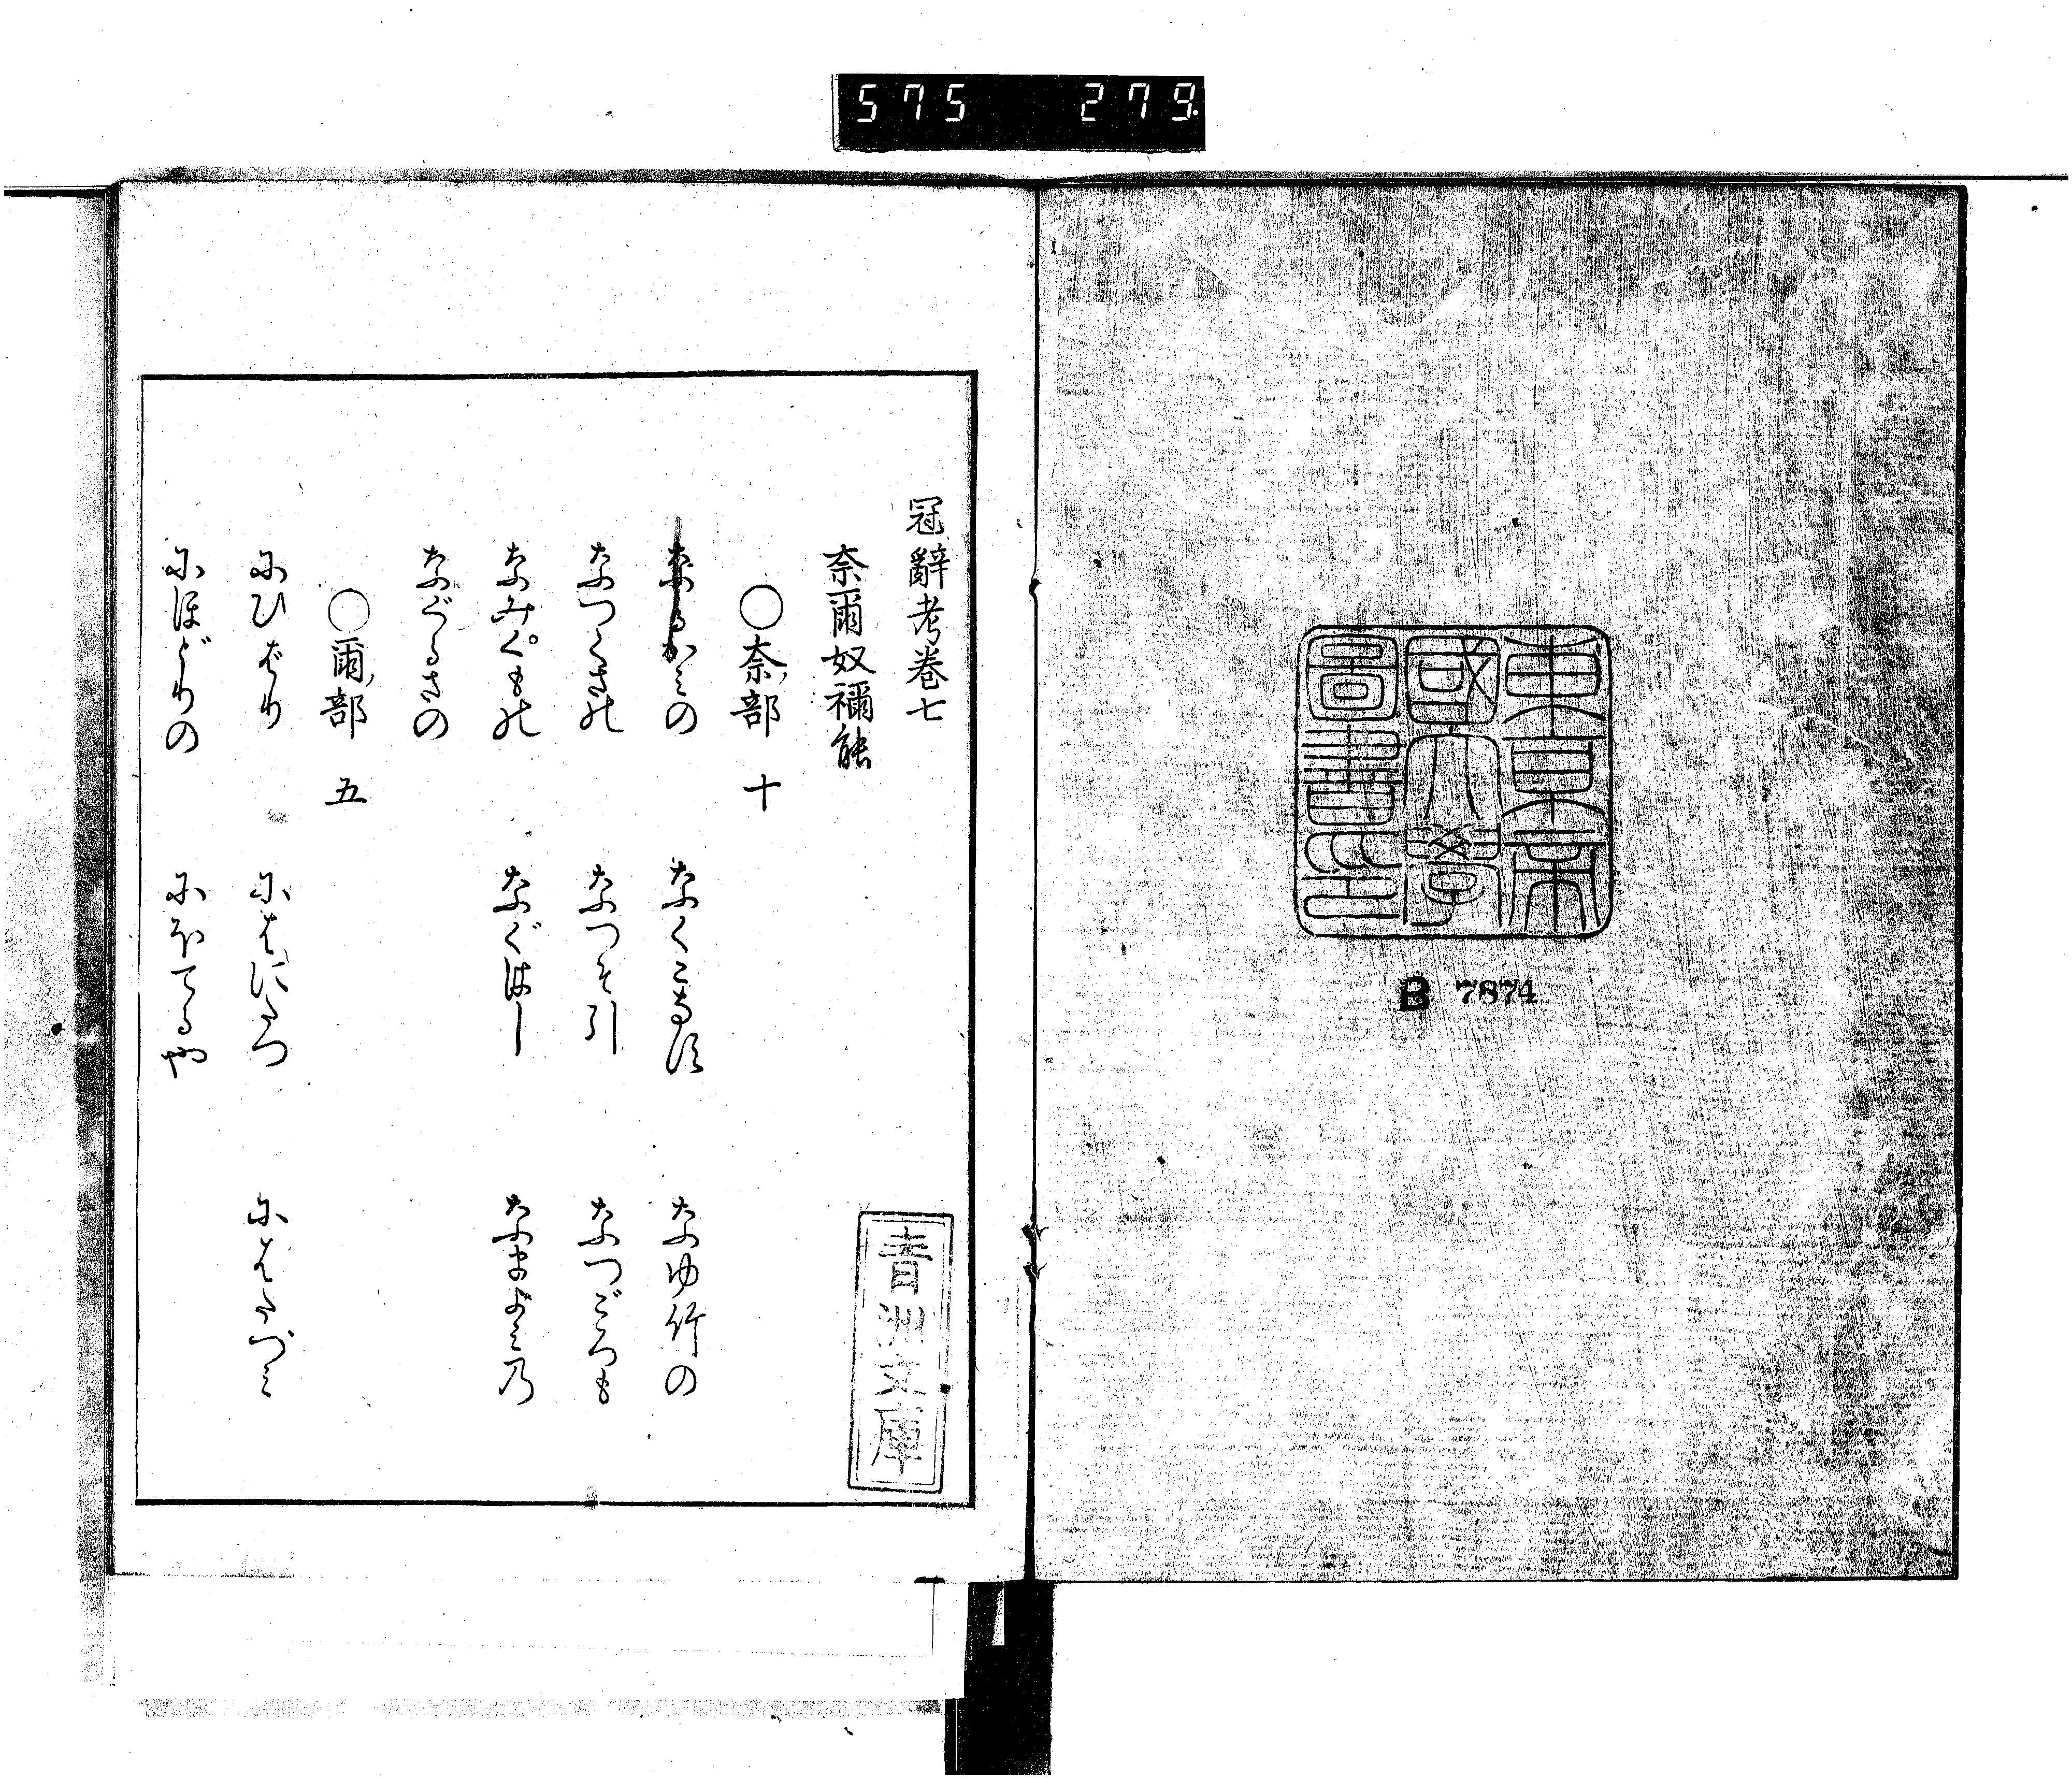 575 279
東京帝
國大學
圖書印
B 7874
冠辭考卷七
奈爾奴禰能
〇奈部 十
なるかみの なくこなす なゆ竹の
なつくさの なつそ引 なつごろも
なみくもの なぐはし なまよみ乃
なぐるさの
〇爾部 五
にひばり にはにたつ にはたづみ
にほどりの にほてるや
青洲文庫